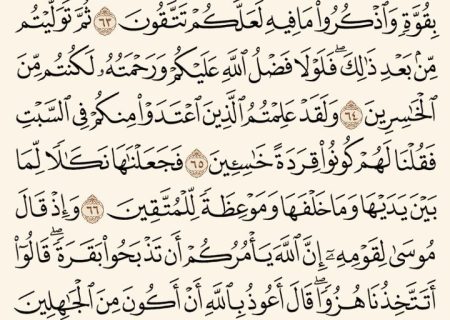 بِقُوَّةٖ وَٱذۡكُرُواْ مَا فِيهِ لَعَلَّكُمۡ تَتَّقُونَ ٦٣ ثُمَّ تَوَلَّيۡتُم
مِّنۢ بَعۡدِ ذَٰلِكَۖ فَلَوۡلَا فَضۡلُ ٱللَّهِ عَلَيۡكُمۡ وَرَحۡمَتُهُۥ لَكُنتُم مِّنَ
ٱلۡخَٰسِرِينَ ٦٤ وَلَقَدۡ عَلِمۡتُمُ ٱلَّذِينَ ٱعۡتَدَوۡاْ مِنكُمۡ فِي ٱلسَّبۡتِ
فَقُلۡنَا لَهُمۡ كُونُواْ قِرَدَةً خَٰسِـِٔينَ ٦٥ فَجَعَلۡنَٰهَا نَكَٰلٗا لِّمَا
بَيۡنَ يَدَيۡهَا وَمَا خَلۡفَهَا وَمَوۡعِظَةٗ لِّلۡمُتَّقِينَ ٦٦ وَإِذۡ قَالَ
مُوسَىٰ لِقَوۡمِهِۦٓ إِنَّ ٱللَّهَ يَأۡمُرُكُمۡ أَن تَذۡبَحُواْ بَقَرَةٗۖ قَالُوٓاْ
أَتَتَّخِذُنَا هُزُوٗاۖ قَالَ أَعُوذُ بِٱللَّهِ أَنۡ أَكُونَ مِنَ ٱلۡجَٰهِلِينَ